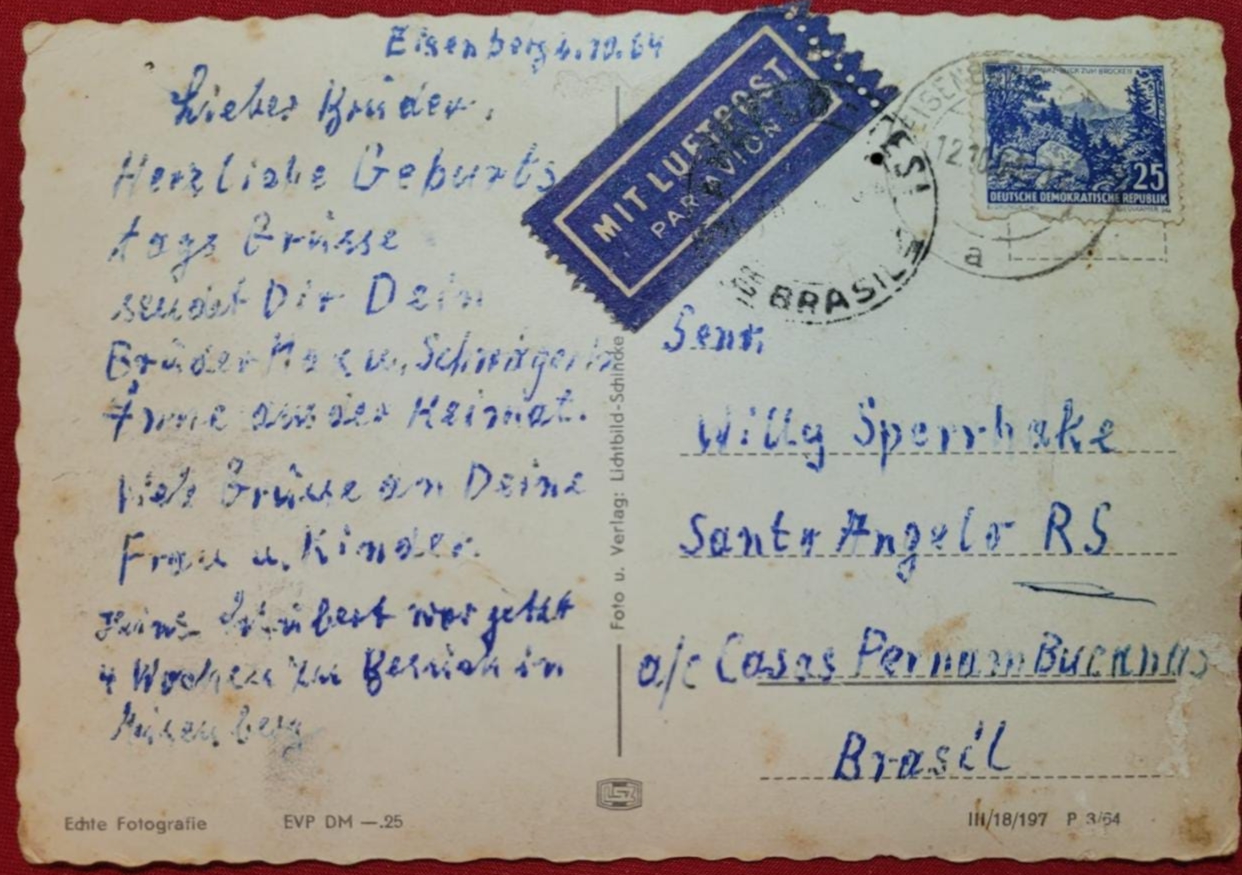 Eisenberg 6.10.64
Lieber Bruder.
Herzliche Geburts
tags Grüsse
sendet Dir Dein
Bruder Max u. Schwägerin
aus der Heimat.
Viele Grüsse an Deine
Frau u. Kinder.
Schubert war jetzt
4 Wochen zu Besuch in
Eisenberg
Echte Fotografie
EVP DM —.25
Foto u. Verlag: Lichtbild-Schincke
MIT LUFTPOST
PAR AVION
BRASIL
EISENB
12.10
a
BLICK ZUM BROCKEN
25
DEUTSCHE DEMOKRATISCHE REPUBLIK
Senr.
Willy Sperrhake
Santo Angelo RS
a/c Casas PernamBucanas
Brasil
III/18/197 P 3/64